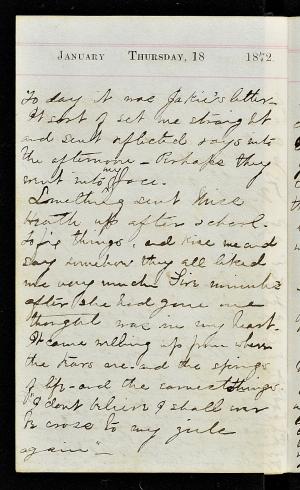 January Thursday, 18 1872.
To day it was Jakie's letter –
It sort of set me straight
and sent reflected rays into
the afternoon – Perhaps they
went into my face.
Something sent Miss
Heath up after school.
to fix things, and kiss me and
say somehow they all liked
me very much. Five minutes
after she had gone one
thought was in my heart.
It came welling up from where
the tears are. and the springs
of life – and the earnest things.
"I don't believe I shall ever
be cross to my girls
again" –